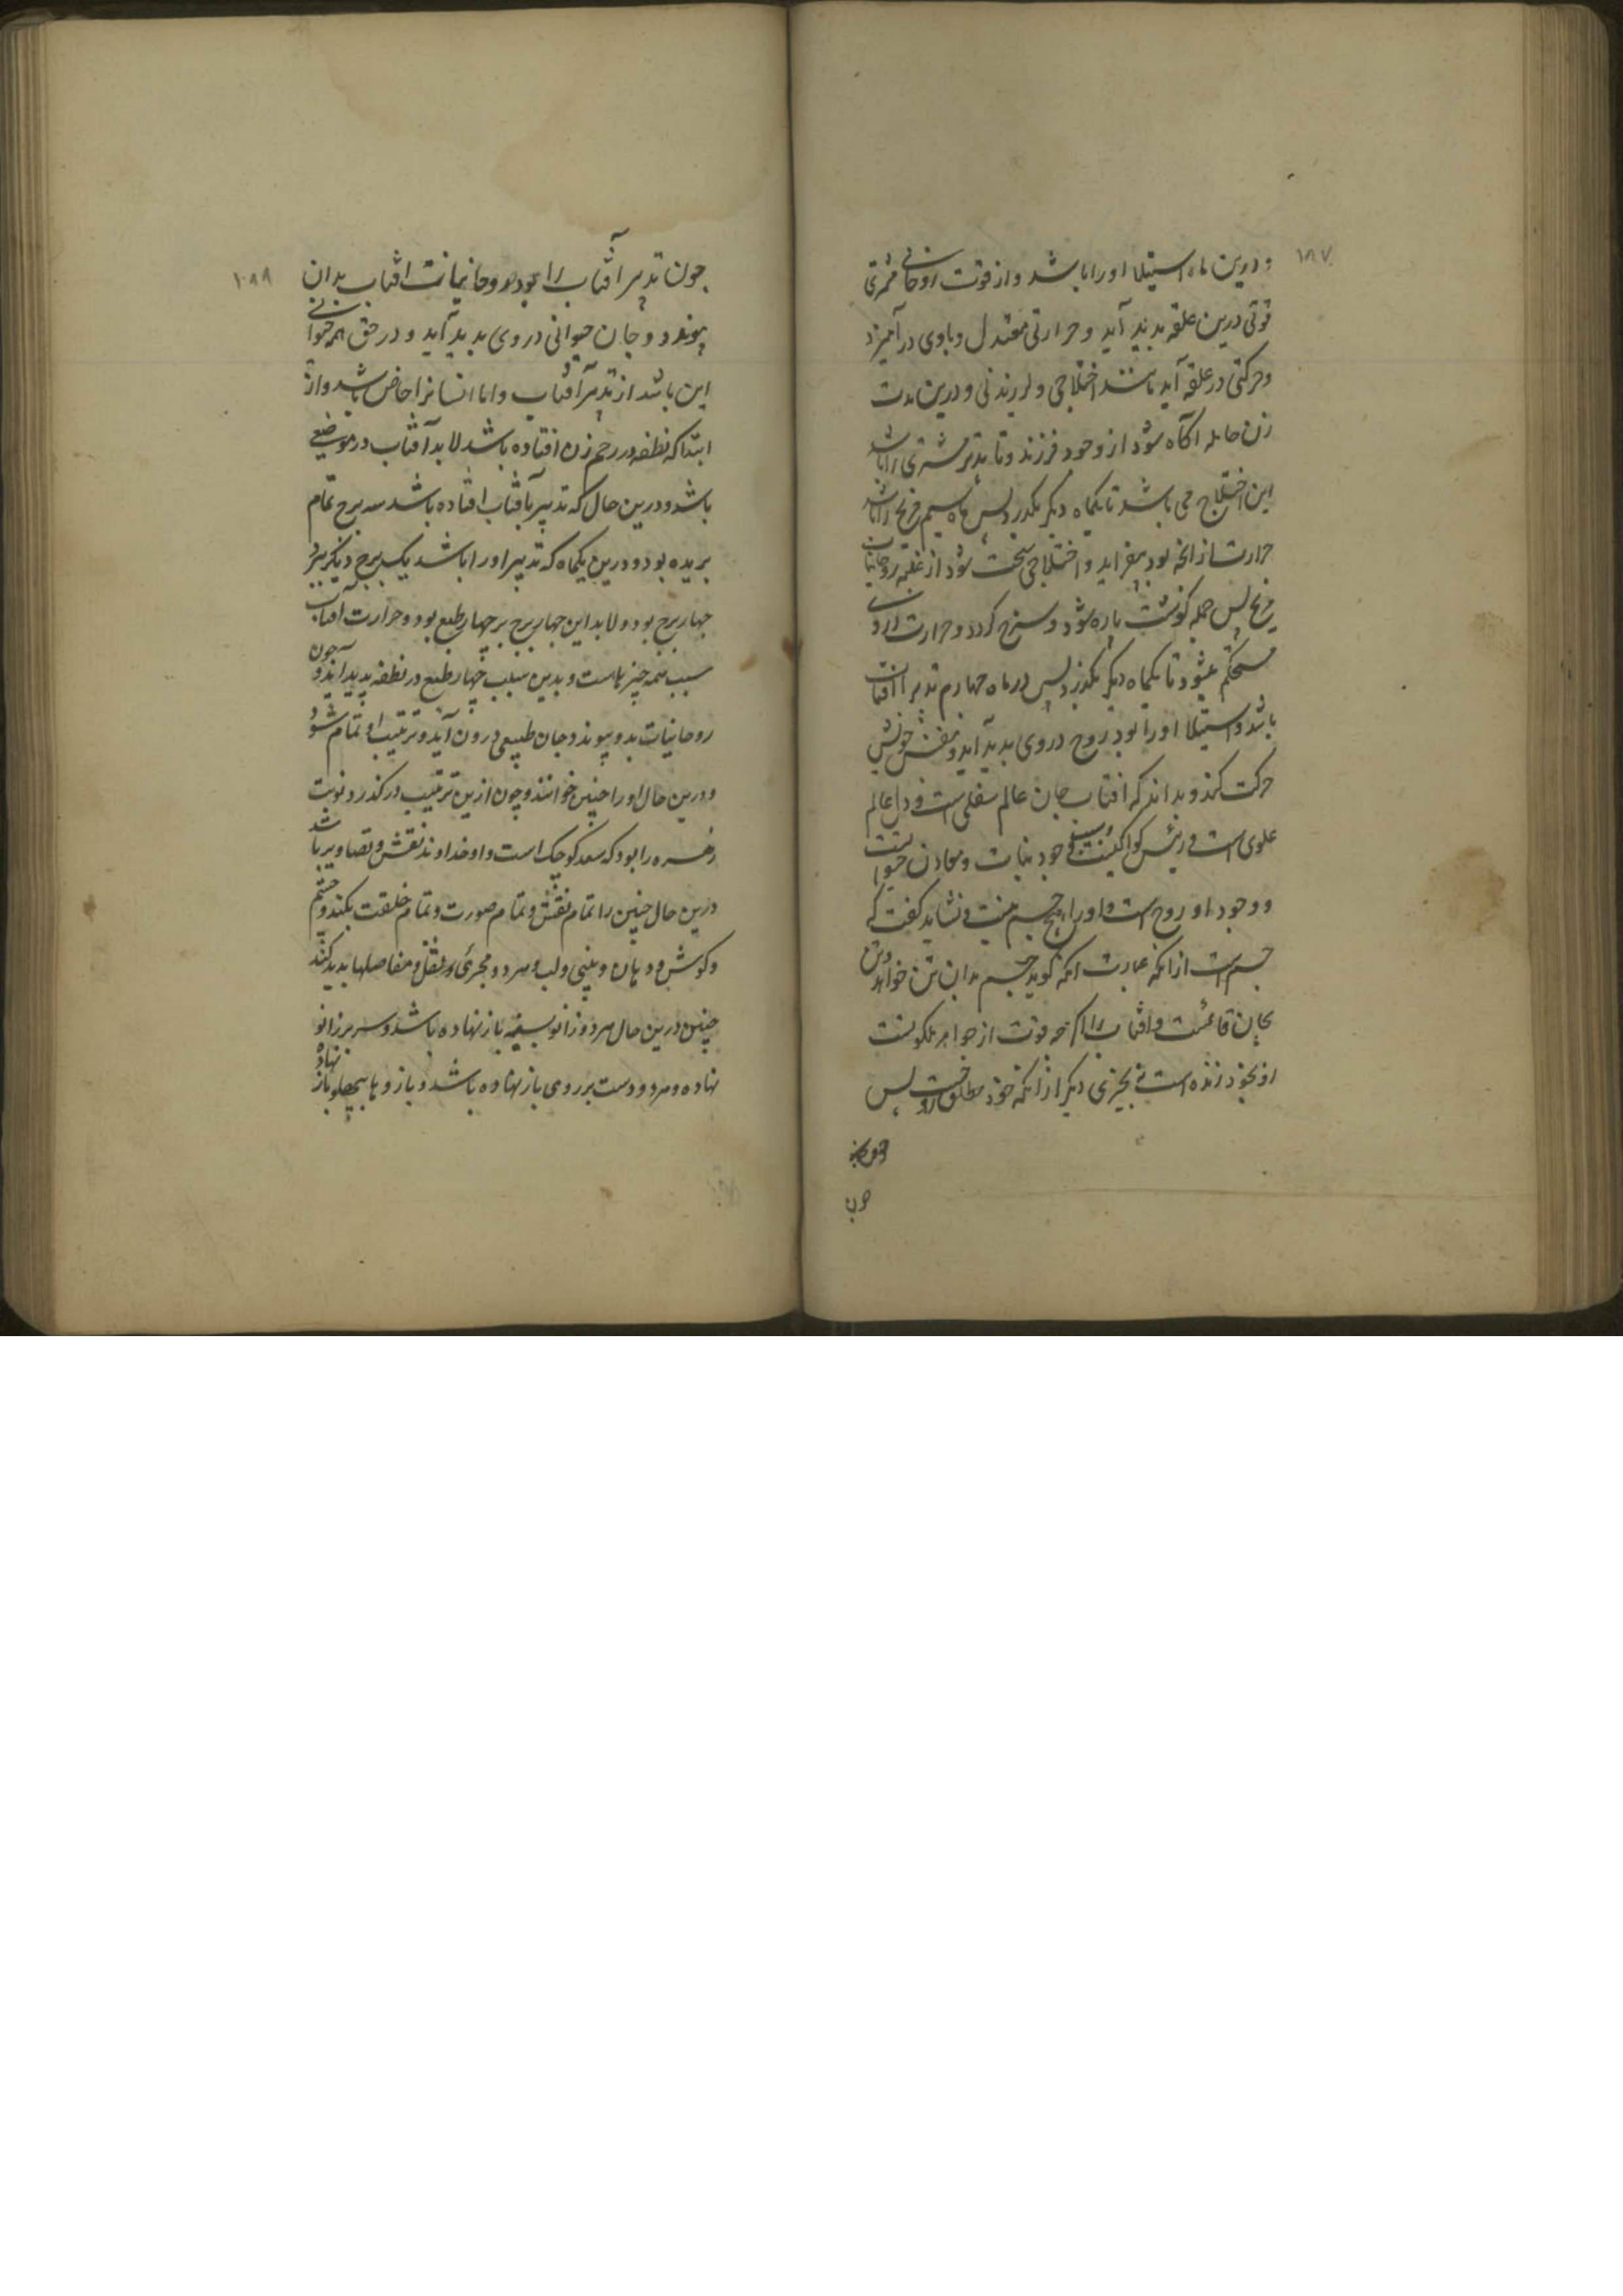 ۱۸۷
و درین ماه استیلا او را باشد و از قوت روحانی مشتری
قوتی درین علقه بدید آید و حرارتی معتدل و باوی درآمیزد
و حرکتی در علقه آید مانند اختلاجی و لرزیدنی و درین مدت
زن حامله آکاه شود از وجود فرزند و تا تدبیر مشتری را باشد
این اختلاج می باشد تا یکماه دیکر بکذرد بس ماه سیم مریخ را باشد
حرارت از انچه بود بیفزاید و اختلاجی سخت شود از غلبه روحانیات
مریخ بس جمله کوشت باره شود و سرخ کردد و حرارت در وی
مستحکم میشود تا یکماه دیکر بکذرد بس در ماه چهارم تدبیر آفتاب
باشد و استیلا او را بود روح در وی بدید آید و بنفس خویش
حرکت کند و بداند که افتاب جان عالم سفلی است و دل عالم
علوی است و رئیس کواکبست و وجود نبات و معادن
و وجود او روح است و او را هیچ جسم نیست و نشاید کفت که
جسم است از انکه عبارت انکه کوید جسم بدان تن خواهد و تن
بجان قائمست و افتاب را اکرچه قوت از جواهر ملکوتست
او بخود زنده است نه بچیزی دیکر از انکه خود مطلق روحست بس
چون
۱۸۸
چون تدبیر افتاب را بود روحانیات افتاب بدان
پیوندد و جان حیوانی در وی بدید آید و در حق همه حیوانی
این باشد از تدبیر آفتاب و اما انسانرا خاص باشد و از
ابتدا که نطفه در رحم زن افتاده باشد لابد آفتاب در موضعی
باشد و درین حال که تدبیر بآفتاب افتاده باشد سه برج تمام
بریده بود و درین یکماه که تدبیر او را باشد یک برج دیکر ببرد
چهار برج بود و لابد این چهار برج بر چهار طبع بود و حرارت آفتاب
سبب همه چیزهاست و بدین سبب چهار طبع در نطفه بدید آید و چون
روحانیات بدو پیوندد جان طبیعی درون آید و ترتیب او تمام شود
و درین حال او را جنین خوانند و چون ازین ترتیب درکذرد نوبت
زهره را بود که سعد کوچک است و او خداوند نقش و تصاویر باشد
درین حال جنین را تمام نقش و تمام صورت و تمام خلقت بکند و چشم
و کوش و دهان و بینی و لب و هر دو مجرئ و مفاصلها بدید کند
جنین درین حال هر دو زانو بسینه باز نهاده باشد و سر بر زانو
نهاده و هر دو دست بر روی باز نهاده باشد و بازوها بپهلو باز نهاده